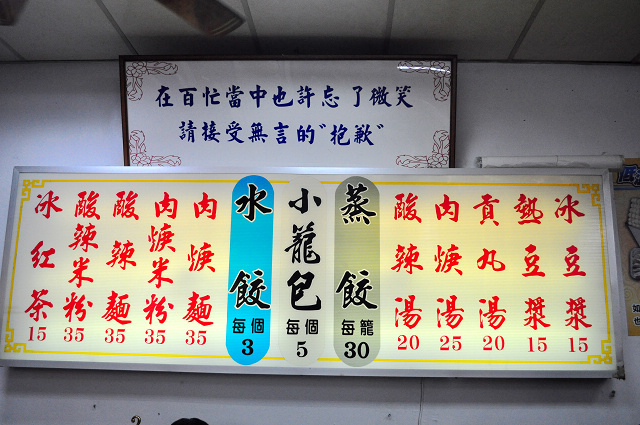 在百忙當中也許忘了微笑
請接受無言的"抱歉"
冰豆漿 15
熱豆漿 15
貢丸湯 20
肉焿湯 25
酸辣湯 20
蒸餃 每籠 30
小籠包 每個 5
水餃 每個 3
肉焿麵 35
肉焿米粉 35
酸辣麵 35
酸辣米粉 35
冰紅茶 15